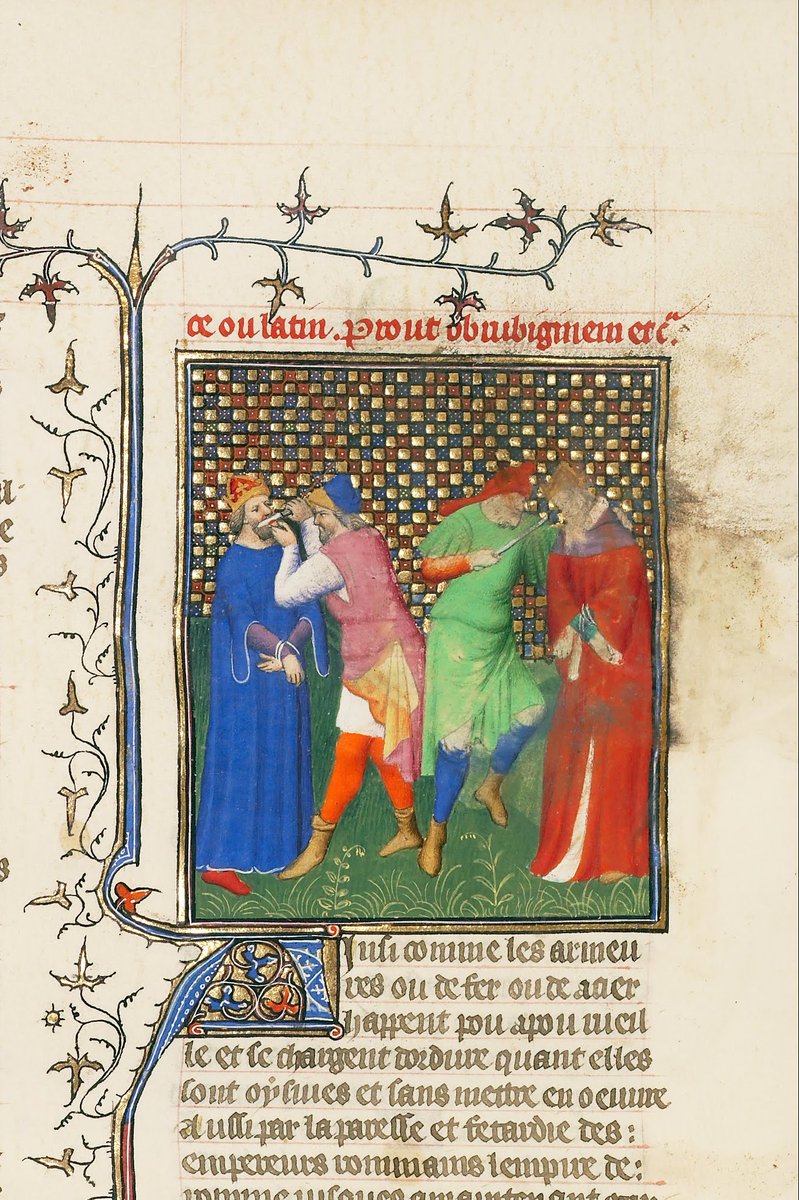 ce ou latin. Prout ob rubiginem etc̃.
Ainsi comme les armeu
res ou de fer ou de acier
happent pou a pou rueil
le et se chargent dordure quant elles
sont oysiues et sans mettre en oeuure
Aussi par la paresse et fetardie des:
empereurs rommains lempire de:
romme jusques a maintenant